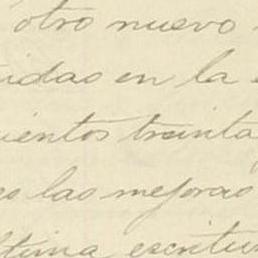 otro nuevo
idas en la
ientos treinta
es las mejoras
ltima escritu